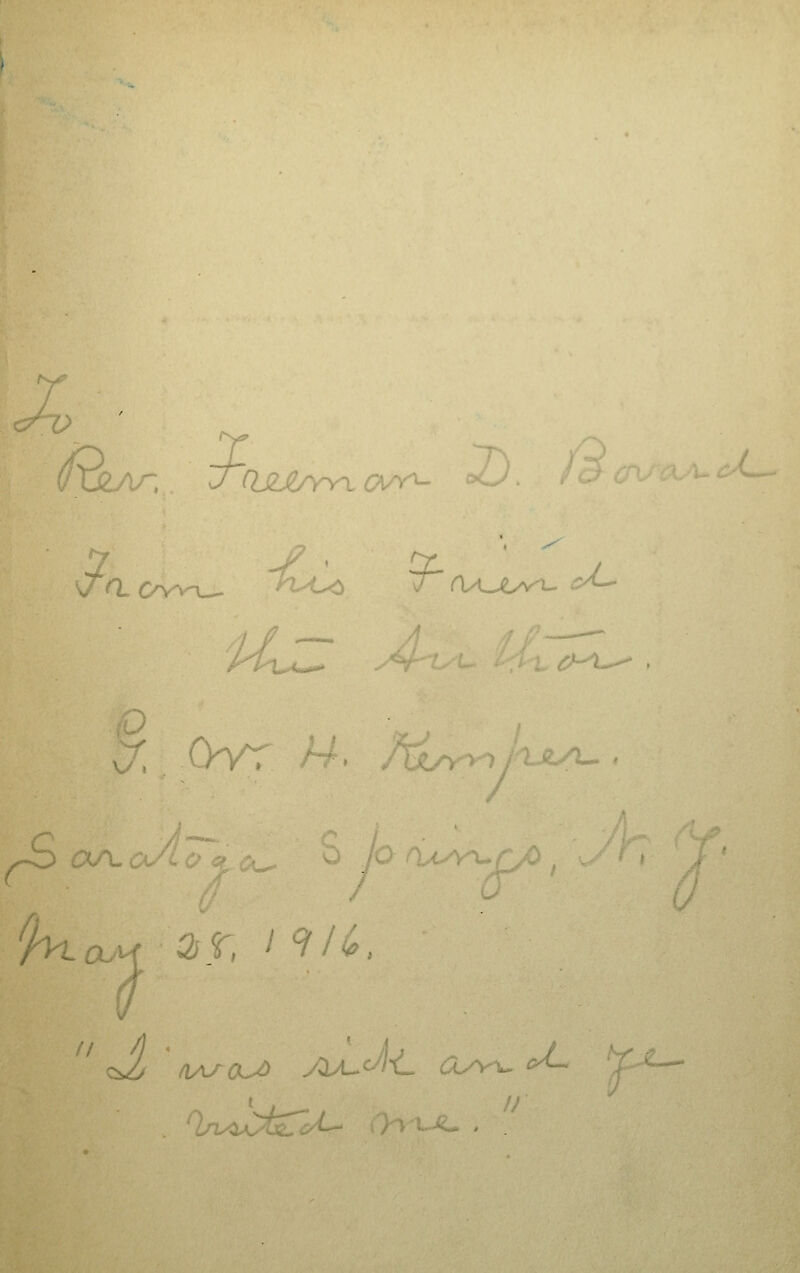 To
Rev. Freeman D. Bovard
From his Friend
The Author.
G. W. H. Kemper.
Saratoga Springs, N. Y.
May 28, 1916.
"I was sick and ye
visited me."